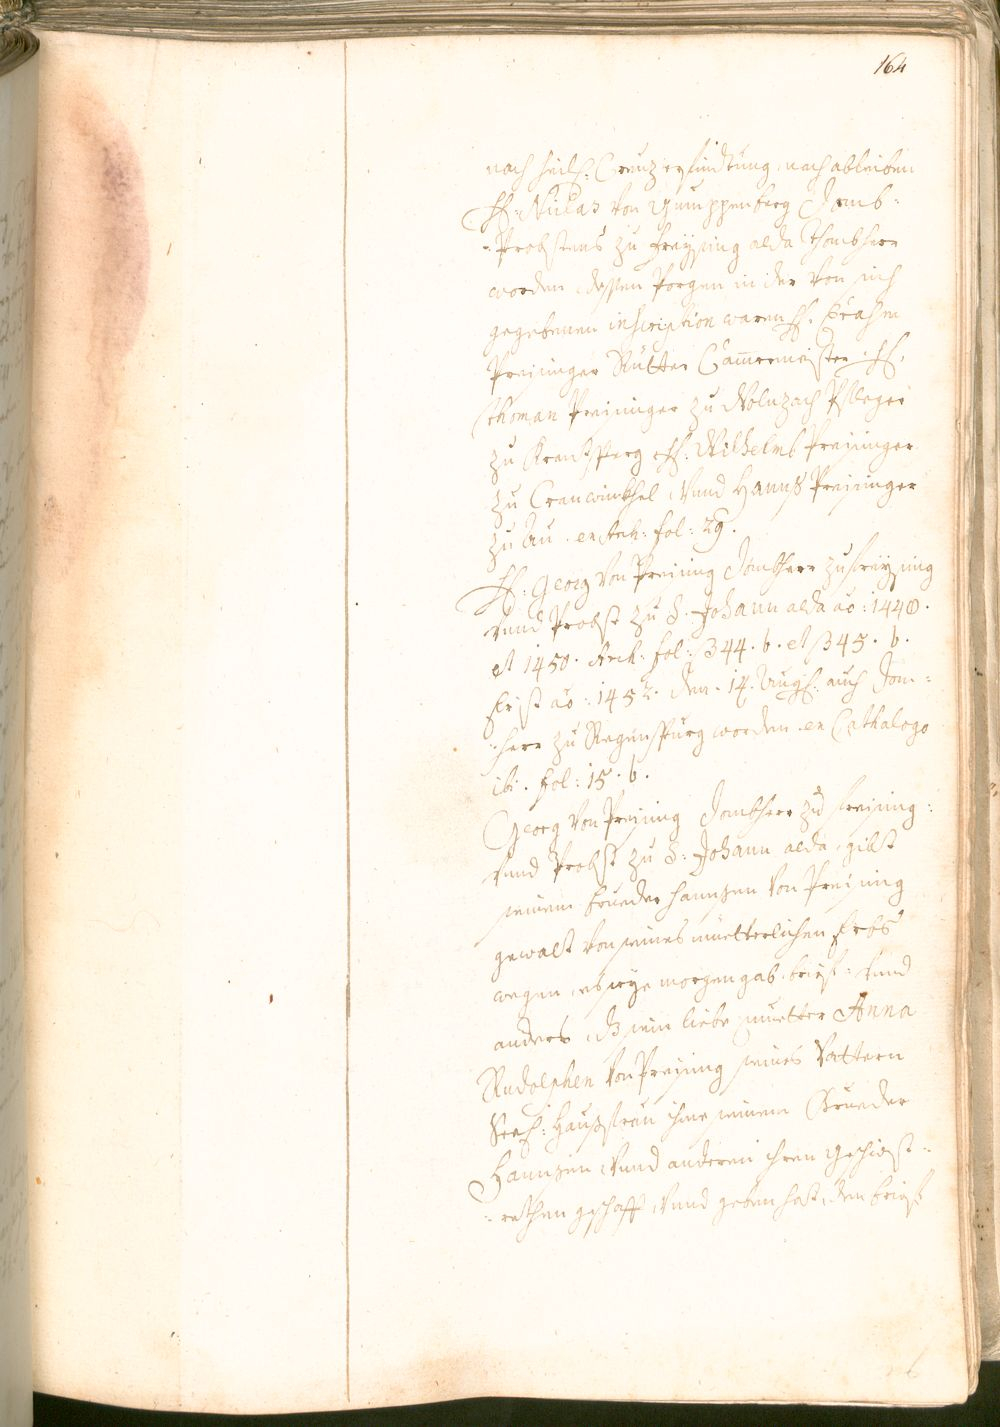 164
nach heil: Creuz erfindtung, nach ableiben
H: Niclas von Gumppenberg Domb-
Probstens zu Freysing alda Thombherr
worden, dessen Porgen in der von sich
gegebenen inscription waren H:
Preisinger Ritter Camermeister, H:
Thoman Preisinger zu Wolnzach Pfleger
zu Krantsperg H: Wilhelm Preisinger
zu Cranwinkhel, Vnnd Hannß Preisinger
zu Au. ex Arch: fol: 29.
H: Georg von Preising Dombherr zu Freysing
vnnd Probst zu S. Johann alda ao: 1440.
et 1450. Arch: fol: 344. b. et 345. b.
Er ist ao: 1452. den. 14. Augs: auch Dom-
herr zu Regenspurg worden. ex Cathalogo
ibi. fol: 15. b.
Georg von Preising Dombherr zu Freising:
vnnd Probst zu S: Johann alda, gibt
seinem Brueder Hannsen von Preising
gewalt von seines muetterlichen Erbs
wegen, es seye morgengab, brief: vnnd
anders, dz sein liebe muetter Anna
Rudolphen von Preising seines Vattern
Seel: Haußfrau ihme seinem Brueder
Hannsen, Vnnd anderen ihren geschwist-
rethen geschafft, Vnnd geben hat, den brief